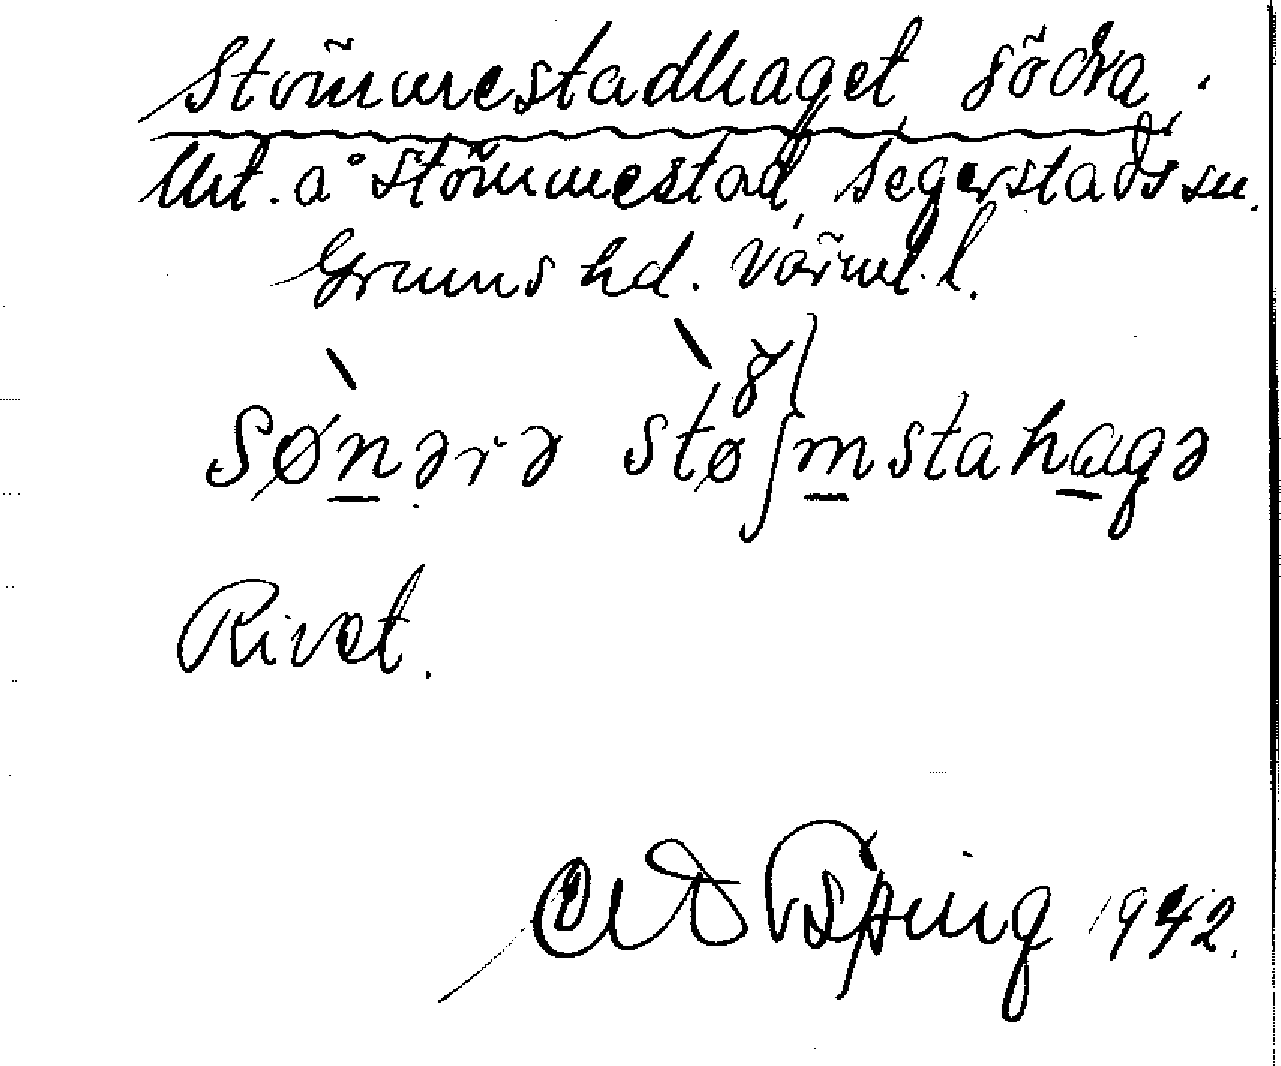 Stömmestadhaget, södra.
Lht. å Stömmestad, Segerstads sn.
Grums hd. Värml. l.
sønərə stømstahagə
Rivet.
1942.